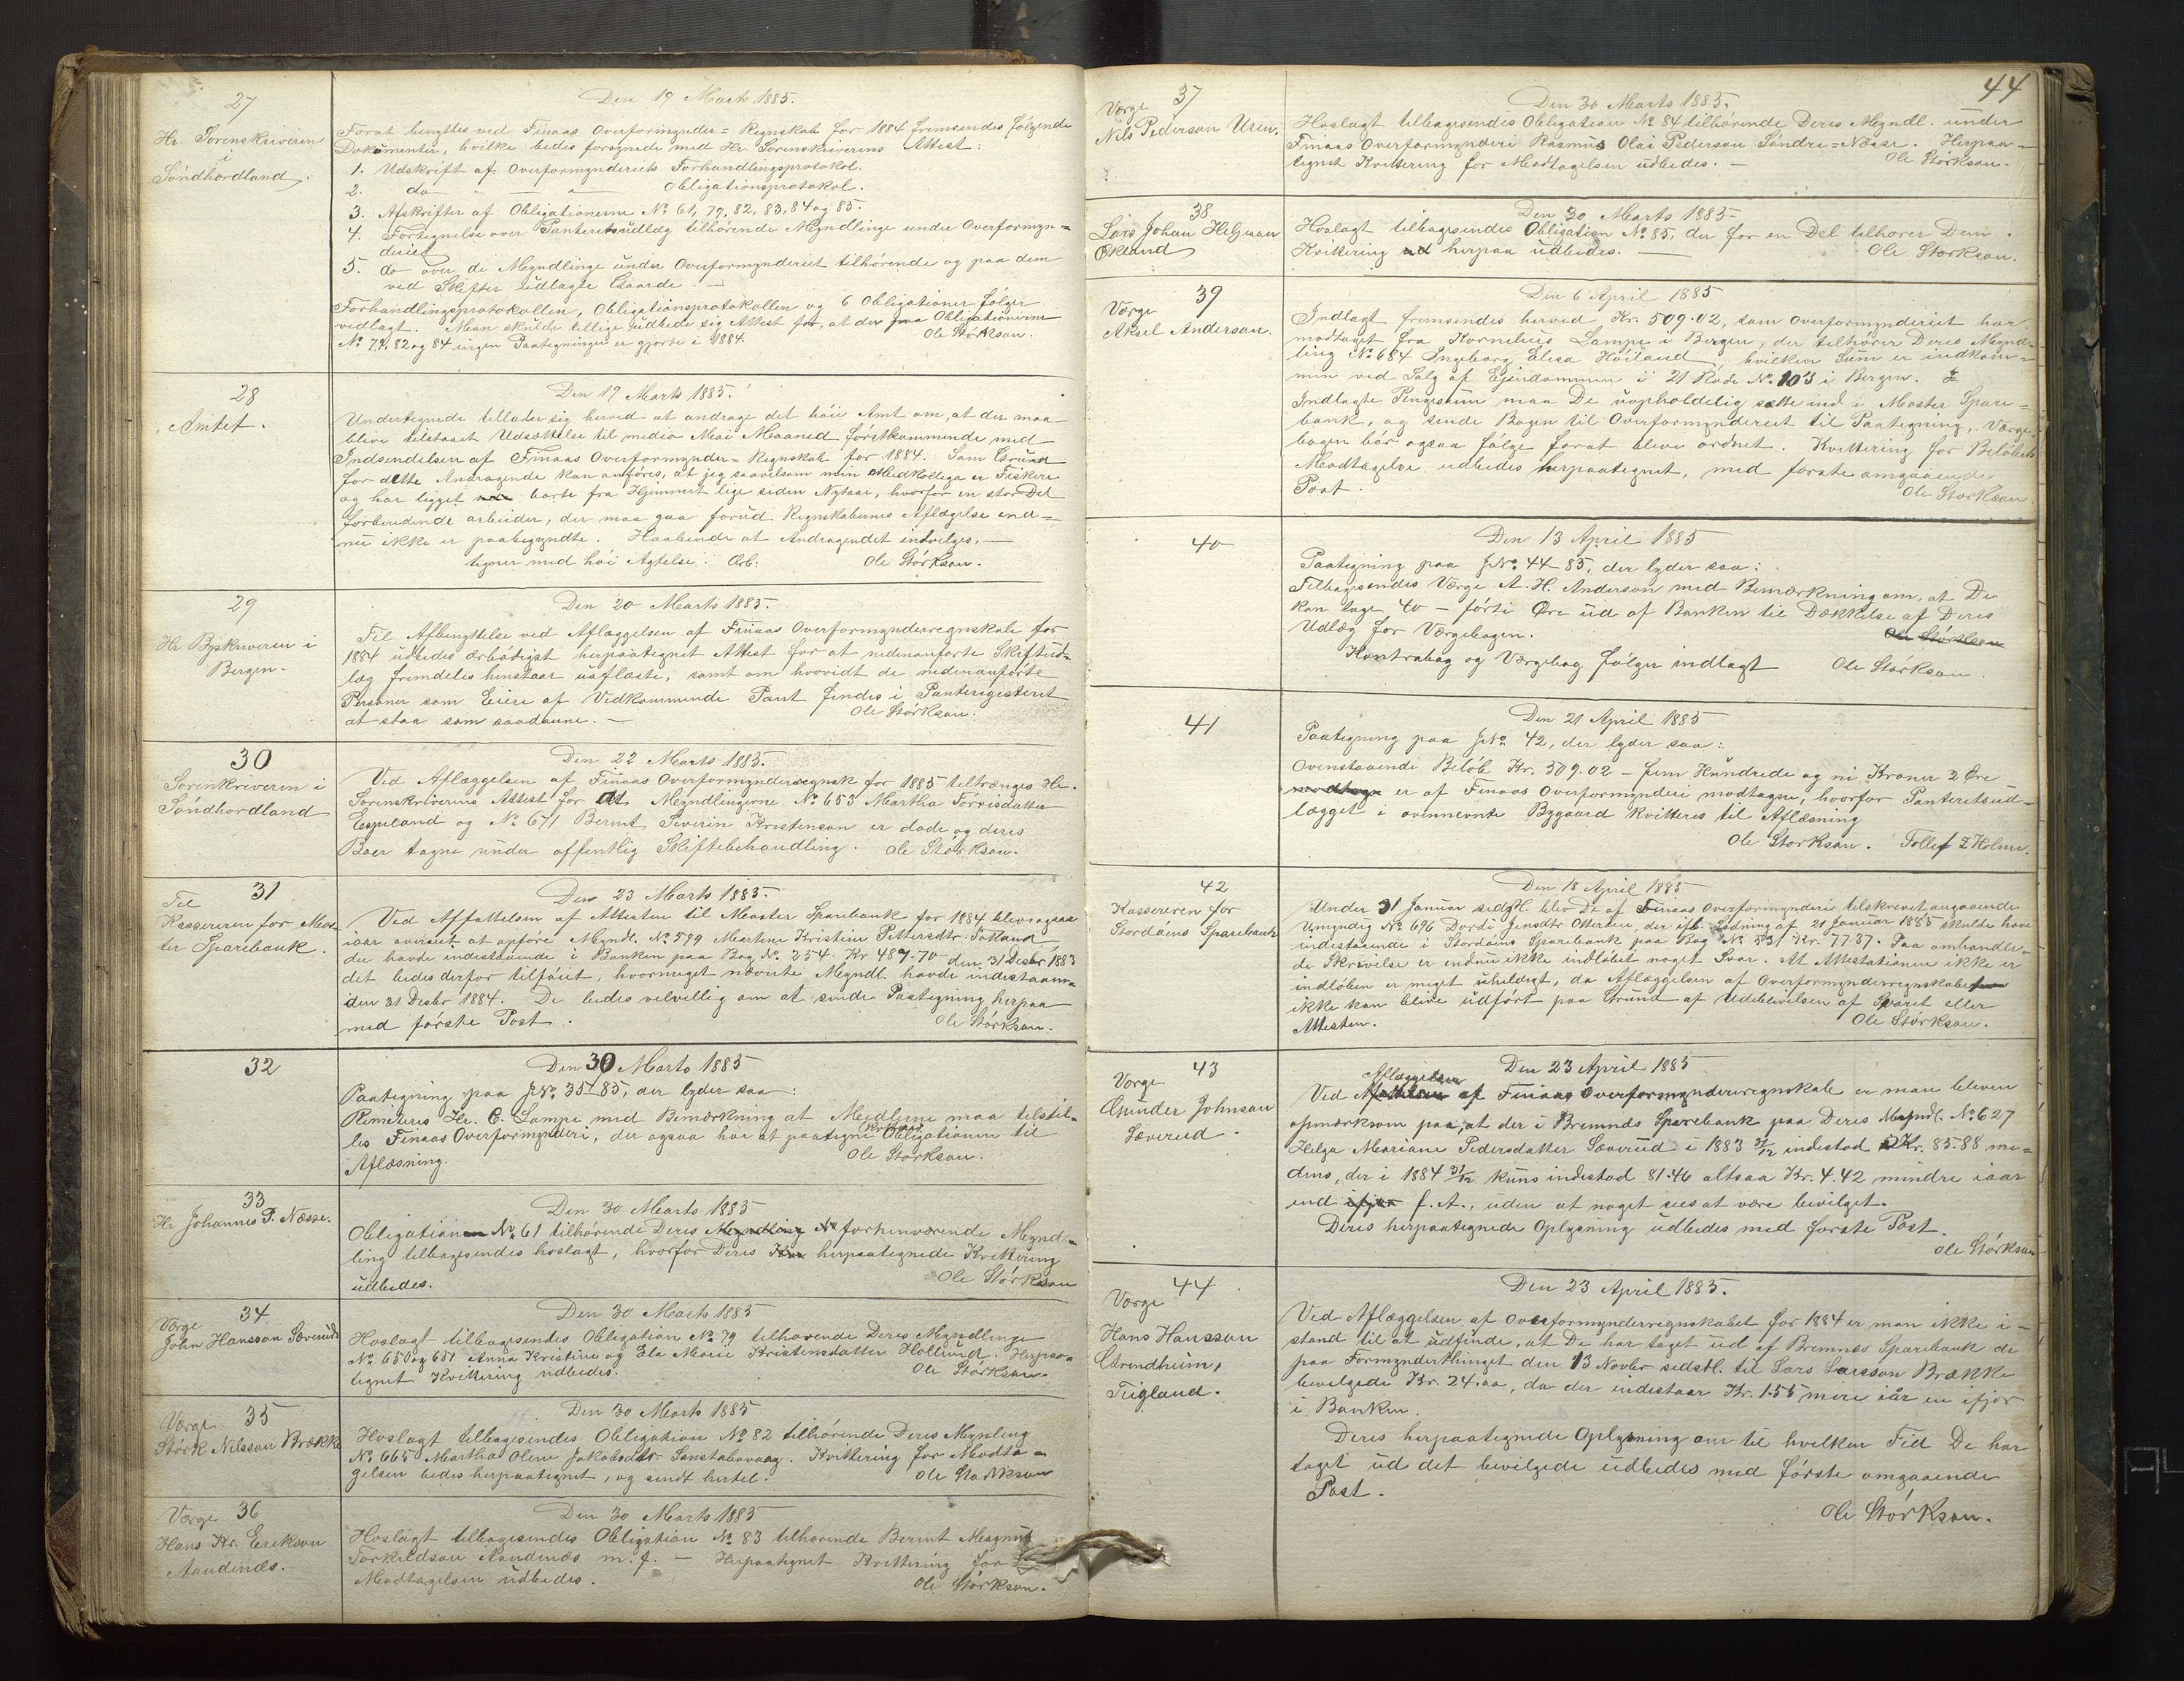 27
Hr. Sorenskriveren
i
Söndhordland.
Den 19 Marts 1885.
Forat benyttes ved Finaas Overformynder=Regnskab for 1884 fremsendes følgende
Dokumenter, hvilke bedes forsynede med Hr. Sorenskriverens Attest:
1. Udskrift af Overformynderiets Forhandlingsprotokol.
2. do — — Obligationsprotokol.
3. Afskrifter af Obligationerne No 61, 79, 82, 83, 84 og 85.
4. Fortegnelse over Panteretsudlæg tilhörende Myndlinge under Overformyn=
deriet
5. do over de Myndlinge under Overformynderiet tilhörende og paa dem
ved Skifter udlagte Gaarde. —
Forhandlingsprotokollen, Obligationsprotokollen og 6 Obligationer følger
vedlagt. Man skulde tillige udbede sig Attest for, at der paa Obligationerne
No 79, 82 og 84 ingen Paategninger er gjorte i 1884. Ole Störkson.
28
Amtet.
Den 19 Marts 1885.
Undertegnede tillader sig herved at andrage det höie Amt om, at der maa
blive tilstaaet Udsættelse til medio Mai Maaned förstkommende med
Indsendelsen af Finaas Overformynder=Regnskab for 1884. Som Grund
for dette Andragende kan anföres, at jeg saavelsom min Medkollega er Fiskere
og har ligget borte fra Hjemmet lige siden Nytaar, hvorfor en stor Del
forberedende arbeider, der maa gaa forud Regnskabernes Aflæggelse end=
nu ikke er paabegyndte. Haabende at Andragendet indvilges, —
tegner med höi Agtelse. Ærb: Ole Störkson.
29
Hr Byskriveren i
Bergen.
Den 20 Marts 1885.
Til Afbenyttelse ved Aflæggelsen af Finaas Overformynderregnskab for
1884 udbedes ærbödigst herpaategnet Attest for at nedenanförte Skifteud=
læg fremdeles henstaar uaflæste, samt om hvorvidt de nedenanförte
Personer som Eiere af Vedkommende Pant findes i Panteregisteret
at staa som saadanne. — Ole Störkson.
30
Sorenkriveren i
Söndhordland
Den 22 Marts 1885.
Ved Aflæggelsen af Finaas Overformynderregnsk for 1885 tiltrænges Hr.
Sorenskriverens Attest for At Myndlingerne No 653 Martha Torrisdatter
Espeland og No 671 Bernt Severin Kristenson er døde og deres
Boer tagne under offentlig Skiftebehandling. Ole Störkson.
31
Til
Kassereren for Mos=
ter Sparebank.
Den 23 Marts 1885.
Ved Affattelsen af Attesten til Moster Sparebank for 1884 blev ogsaa
iaar overseet at opføre Myndl. No 599 Martine Kristine Pettersdtr Totland
der havde indestaaende i Banken paa Bog No. 254 Kr 489.70 den 31 Decbr 1883
det bedes derfor tilföiet, hvormeget nævnte Myndl. havde indestaaende
den 31 Decbr 1884. De bedes velvillig om at sende Paategning herpaa
med förste Post. Ole Störkson.
32
Den 30 Marts 1885
Paategning paa JNo. 35/85, der lyder saa:
Remiteres Hr. C. Lampe med Bemærkning at Midlerne maa tilstil=
les Finaas Overformynderi, der ogsaa har at paategne Obligationen til
Aflæsning. Ole Störkson.
33
Hr Johannes P. Næsse.
Den 30 Marts 1885
Obligation No. 61 tilhörende Deres forhenværende Mynd=
ling tilbagesendes hoslagt, hvorfor Deres herpaategnede Kvittering
udbedes. Ole Störkson
34
Værge
John Hansson Sæverud
Den 30 Marts 1885
Hoslagt tilbagesendes Obligation No 79 tilhørende Deres Myndlinge
No 650 og 651 Anna Kristine og Ela Marie Kristensdatter Hollund. Herpaa=
tegnet Kvittering udbedes. Ole Störkson.
35
Værge
Störk Nilsson Brække
Den 30 Marts 1885
Hoslagt tilbagesendes Obligation No 82 tilhörende Deres Myndling
No 665 Martha Oline Jakobsdtr Sanstabovaag. Kvittering for Modta=
gelsen bedes herpaategnet, og sendt hertil. Ole Störkson
36
Værge
Hans Kr. Erikson
Aandenæs.
Den 30 Marts 1885
Hoslagt tilbagesendes Obligation No 83 tilhørende Bernt Magnus
Torkildson Aandenæs m. f. — Herpaategnet Kvittering for
Modtagelsen udbedes. Ole Störkson.
44
37
Værge
Nils Pederson Uren.
Den 30 Marts 1885.
Hoslagt tilbagesendes Obligation No 84 tilhørende Deres Myndl. under
Finaas Overformynderi Rasmus Olai Pederson Söndre=Næsse. Herpaa=
tegnet Kvittering for Modtagelsen udbedes. — Ole Störkson.
38
Lars Johan Helgeson
Økland
Den 30 Marts 1885.
Hoslagt tilbagesendes Obligation No. 85, der for en Del tilhører Dem.
Kvittering herpaa udbedes. — Ole Störkson.
39
Værge
Aksel Anderson.
Den 6 April 1885
Indlagt fremsendes herved Kr. 509.02, som Overformynderiet har
modtaget fra Kornelius Lampe i Bergen, der tilhører Deres Mynd=
ling No 684 Ingeborg Elisa Høiland, hvilken Sum er indkom=
men ved Salg af Ejendommen i 21 Rode No. 103 i Bergen.
Indlagte Pengesum maa De uopholdelig sætte ind i Moster Spare=
bank, og sende Bogen til Overformynderiet til Paategning. Værge=
bogen bör ogsaa følge forat blive ordnet. Kvittering for Belöbets
Modtagelse udbedes herpaategnet, med første omgaaende
Post. Ole Störkson.
40
Den 13 April 1885
Paategning paa JNo. 44-85, der lyder saa:
Tilbagesendes Værge A. H. Anderson med Bemærkning om, at De
kan tage 40 — förti Øre ud af Banken til Dækkelse af Deres
Udlæg for Værgebogen. Ole Störkson
Kontrabog og Værgebog følger indlagt Ole Störkson.
41
Den 21 April 1885
Paategning paa JNo. 42, der lyder saa:
Ovenstaaende Belöb Kr. 509.02 — fem Hundrede og ni Kroner 2 Øre
modtage er af Finaas Overformynderi modtagne, hvorfor Panteretsud=
lægget i ovennevnte Bygaard kvitteres til Aflæsning
Ole Störkson. Tollef Z Holme.
42
Kassereren for
Stordöens Sparebank
Den 18 April 1885
Under 31 Januar sidstl. blev Dr af Finaas Overformynderi tilskrevet angaaende
Umyndig No 696 Dordi Jensdtr Ottersen, der ifl. Lödning af 21 Januar 1885 skulde have
indestaaende i Stordöens Sparebank paa Bog No 531 Kr. 77.37. Paa omhandle=
de Skrivelse er endnu ikke indløbet noget Svar. At Attestationen ikke er
indløben er meget uheldigt, da Aflæggelsen af Overformynderregnskabet
ikke kan blive udfört paa Grund af Udeblivelsen af Svaret eller
Attesten. Ole Störkson.
43
Værge
Gunder Johnson
Sæverud.
Den 23 April 1885
Aflæggelsen
Ved Affattelsen af Finaas Overformynderregnskab er man bleven
opmerksom paa, at der i Bremnes Sparebank paa Deres Myndl. No 627
Helga Mariane Pedersdatter Sæverud i 1883 31/12 indestod Kr. 85.88 me=
dens, der i 1884 31/12 kuns indestod 81.46 altsaa Kr. 4.42 mindre iaar
end ifjor f. A., uden at noget sees at være bevilget.
Deres herpaategnede Oplysning udbedes med første Post.
Ole Störkson
44
Værge
Hans Hansson
Grindheim,
Tigland.
Den 23 April 1885.
Ved Aflæggelsen af Overformynderregnskabet for 1884 er man ikke i=
stand til at udfinde, at De har taget ud af Bremnes Sparebank de
paa Formynderthinget den 13 Novbr sidstl. til Lars Larsson Brække
bevilgede Kr. 24.00, da der indestaar Kr. 1.55 mere iår en ifjor
i Banken.
Deres herpaategnede Oplysning om til hvilken Tid De har
taget ud det bevilgede udbedes med første omgaaende
Post.
Ole Störkson.